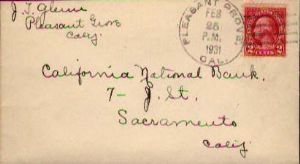 J. T. Glenn
Pleasant Grove
Calif
PLEASANT GROVE,
FEB
26
P.M.
1931
CAL.
2 CENTS 2
California National Bank,
7- J. St,
Sacramento
Calif.